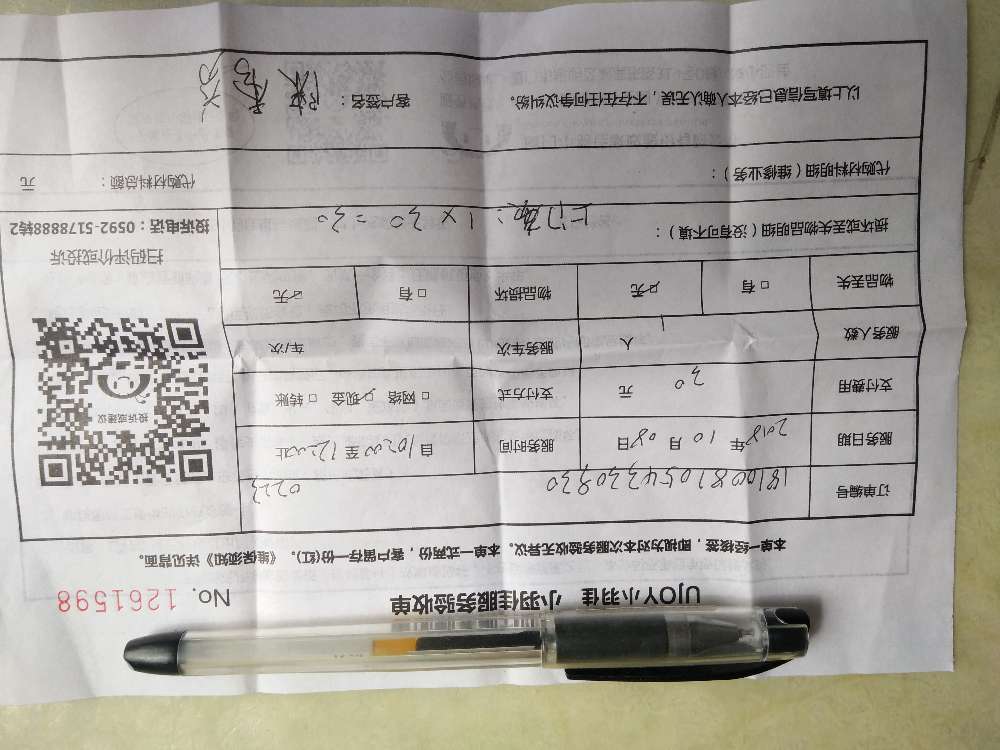 UJOY小羽佳 小羽佳服务验收单 No. 1261598
本单一经核签，即视为对本次服务验收无异议。本单一式两份，客户留存一份(红)。《维保须知》详见背面。
订单编号 18100810543330830 0223
服务日期 2018年10月08日 服务时间 自10:00至12:00止
支付费用 30 元 支付方式 □网络 ☑现金 □转账
服务人数 1 人 服务车次 车/次
物品丢失 □有 ☑无 物品损坏 □有 ☑无
投诉或建议
扫码评价或投诉
投诉电话：0592-5178888转2
损坏或丢失物品明细（没有可不填）：
上门费：1×30=30
代购材料明细（维修业务）： 代购材料总额： 元
以上填写信息已经本人确认无误，不存在任何争议纠纷。 客户签名：陈